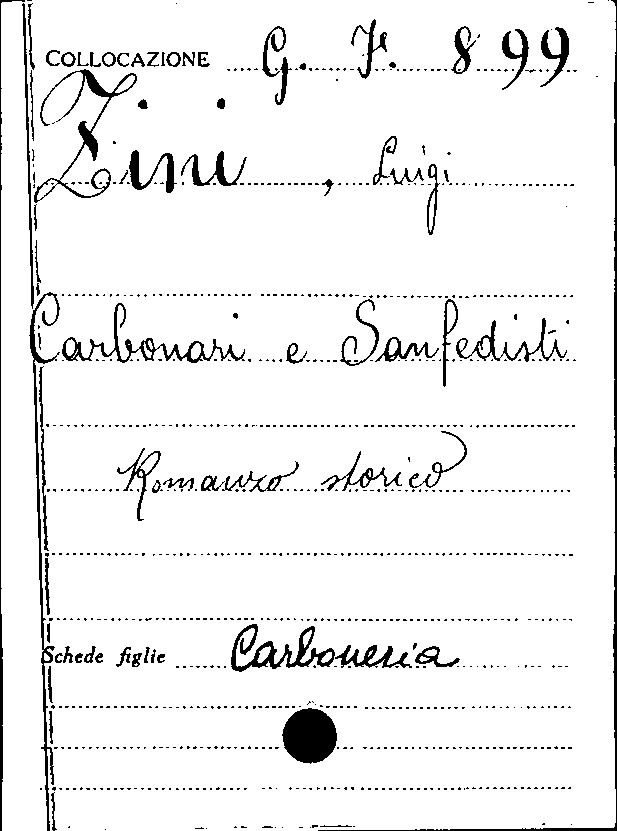 COLLOCAZIONE G. F. 899
Zini, Luigi
Carbonari e Sanfedisti
Romanzo storico
Schede figlie Carboneria